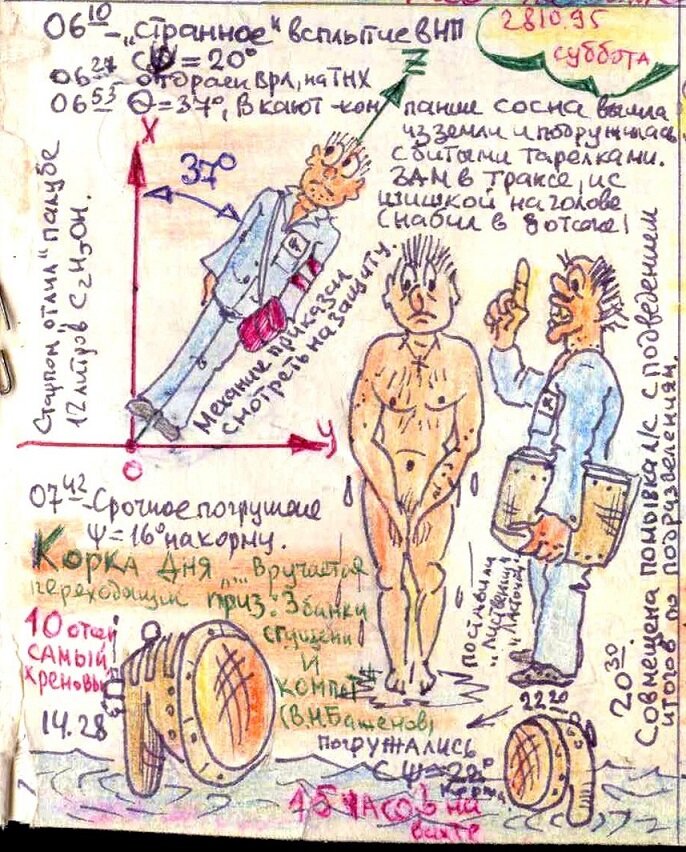 28.10.95
суббота
06¹⁰ – „странное" всплытие в НП
с Ψ = 20°
06²⁷ отдраен ВРЛ, на ТНХ
06⁵³ Θ = 37°, В кают-компании сосна вышла
из земли и подружилась
с битыми тарелками.
ЗАМ в трансе, и с
шишкой на голове
X
Z
Y
O
37°
Старпом отлил палубе
12 литров C₂H₅OH.
Механик приказал
смотреть на защиту.
07⁴² – Срочное погружение
Ψ = 16° на корму.
Корка дня „ – " Вручается
переходящий приз: 3 банки
сгущёни
и
компас
(В.Н. Баженов)
10 отсек
САМЫЙ
хреновый
14.28
поставили
20³⁰
Совмещена помывка л/с с подведением
итогов по подразделениям.
22²⁰
погружались
с Ψ = 22°
Корма
15 часов на
вахте